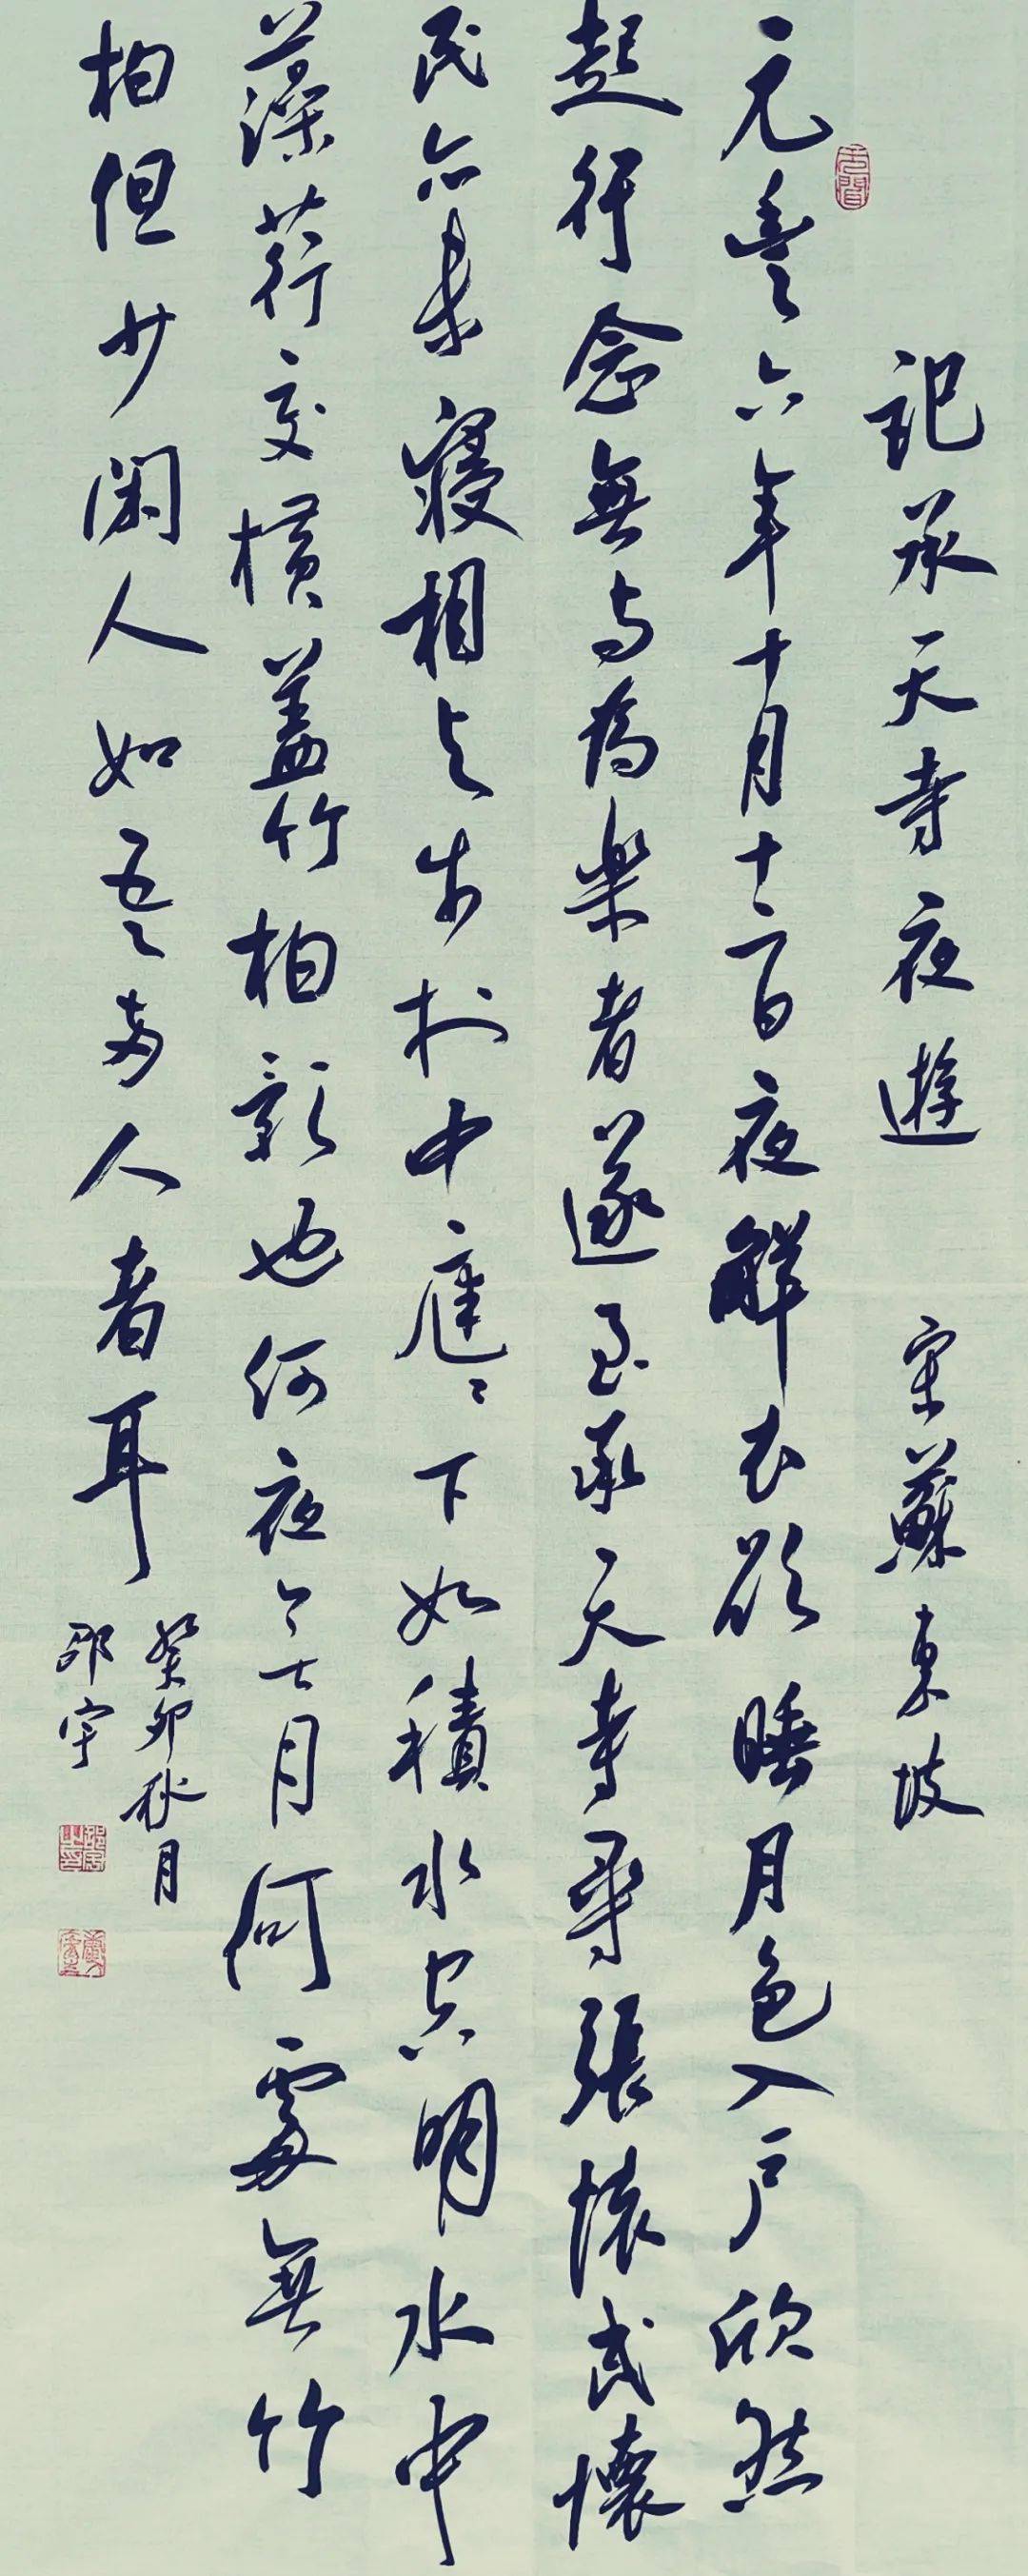 記承天寺夜遊 宋蘇東坡
元豐六年十月十二日夜解衣欲睡月色入戶欣然
起行念無与為樂者遂至承天寺尋張懷民懷
民亦未寢相与步於中庭〻下如積水空明水中
藻荇交橫蓋竹柏影也何夜無月何處無竹
柏但少閑人如吾兩人者耳
癸卯秋月
邵宇